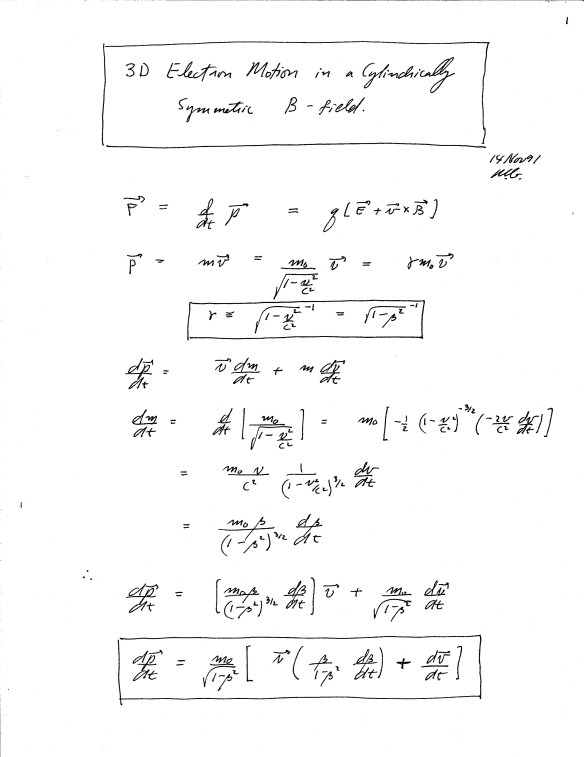 1
3D Electron Motion in a Cylindrically
Symmetric B-field.
14 Nov 91
W.G.
P⃗ = d/dt p⃗ = q[E⃗ + v⃗ × B⃗]
p⃗ = mv⃗ = m₀/√(1-v²/c²) v⃗ = γm₀v⃗
γ ≡ √(1-v²/c²)⁻¹ = √(1-β²)⁻¹
dp⃗/dt = v⃗ dm/dt + m dv⃗/dt
dm/dt = d/dt [m₀/√(1-v²/c²)] = m₀[-½ (1-v²/c²)^(-3/2) (-2v/c² dv/dt)]
= m₀v/c² 1/(1-v²/c²)^(3/2) dv/dt
= m₀β/(1-β²)^(3/2) dβ/dt
∴ dp⃗/dt = [m₀β/(1-β²)^(3/2) dβ/dt] v⃗ + m₀/√(1-β²) dv⃗/dt
dp⃗/dt = m₀/√(1-β²) [v⃗(β/(1-β²) dβ/dt) + dv⃗/dt]